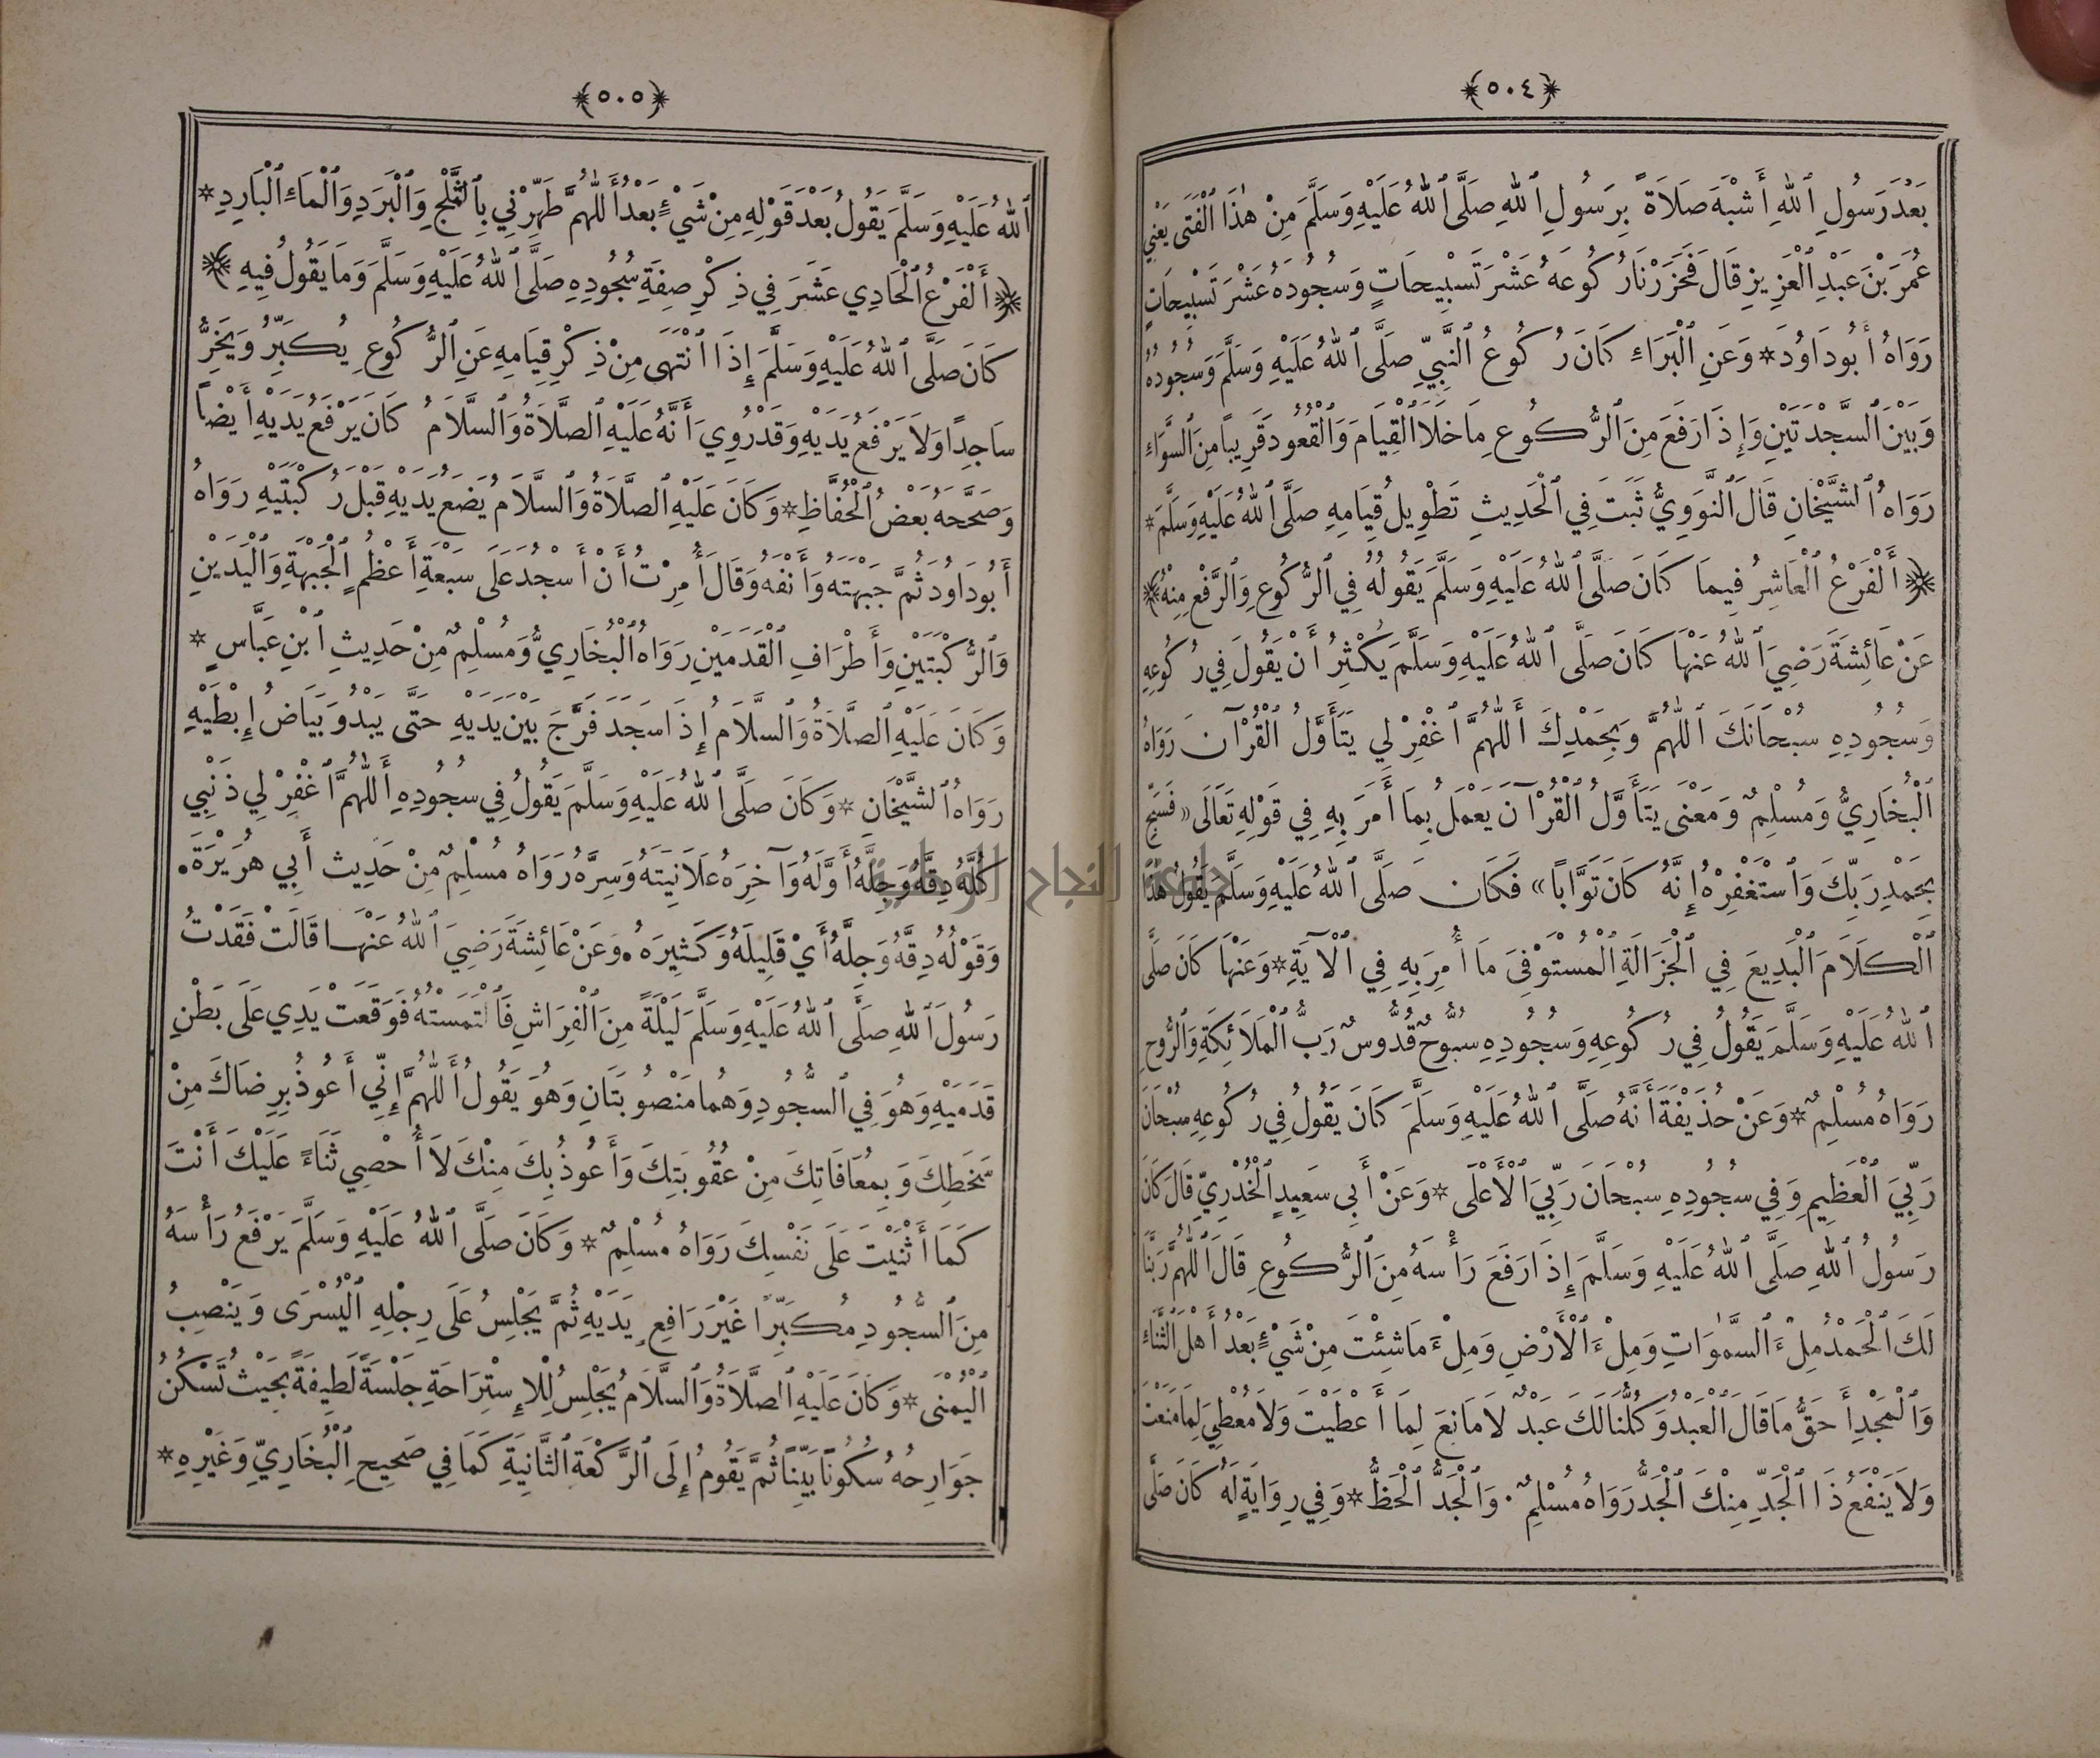 ﴿٥٠٤﴾
بَعْدَ رَسُولِ ٱللهِ أَشْبَهَ صَلَاةً بِرَسُولِ ٱللهِ صَلَّى ٱللهُ عَلَيْهِ وَسَلَّمَ مِنْ هٰذَا ٱلْفَتَى يَعْنِي
عُمَرَ بْنَ عَبْدِ ٱلْعَزِيزِ قَالَ فَحَزَرْنَا رُكُوعَهُ عَشْرَ تَسْبِيحَاتٍ وَسُجُودَهُ عَشْرَ تَسْبِيحَاتٍ
رَوَاهُ أَبُو دَاوُدَ * وَعَنِ ٱلْبَرَاءِ كَانَ رُكُوعُ ٱلنَّبِيِّ صَلَّى ٱللهُ عَلَيْهِ وَسَلَّمَ وَسُجُودُهُ
وَبَيْنَ ٱلسَّجْدَتَيْنِ وَإِذَا رَفَعَ مِنَ ٱلرُّكُوعِ مَا خَلَا ٱلْقِيَامَ وَٱلْقُعُودَ قَرِيبًا مِنَ ٱلسَّوَاءِ
رَوَاهُ ٱلشَّيْخَانِ قَالَ ٱلنَّوَوِيُّ ثَبَتَ فِي ٱلْحَدِيثِ تَطْوِيلُ قِيَامِهِ صَلَّى ٱللهُ عَلَيْهِ وَسَلَّمَ *
﴿ أَلْفَرْعُ ٱلْعَاشِرُ فِيمَا كَانَ صَلَّى ٱللهُ عَلَيْهِ وَسَلَّمَ يَقُولُهُ فِي ٱلرُّكُوعِ وَٱلرَّفْعِ مِنْهُ ﴾
عَنْ عَائِشَةَ رَضِيَ ٱللهُ عَنْهَا كَانَ صَلَّى ٱللهُ عَلَيْهِ وَسَلَّمَ يُكْثِرُ أَنْ يَقُولَ فِي رُكُوعِهِ
وَسُجُودِهِ سُبْحَانَكَ ٱللهُمَّ وَبِحَمْدِكَ أَللهُمَّ ٱغْفِرْ لِي يَتَأَوَّلُ ٱلْقُرْآنَ رَوَاهُ
ٱلْبُخَارِيُّ وَمُسْلِمٌ وَمَعْنَى يَتَأَوَّلُ ٱلْقُرْآنَ يَعْمَلُ بِمَا أُمِرَ بِهِ فِي قَوْلِهِ تَعَالَى «فَسَبِّحْ
بِحَمْدِ رَبِّكَ وَٱسْتَغْفِرْهُ إِنَّهُ كَانَ تَوَّابًا» فَكَانَ صَلَّى ٱللهُ عَلَيْهِ وَسَلَّمَ يَقُولُ هٰذَا
ٱلْكَلَامَ ٱلْبَدِيعَ فِي ٱلْجَزَالَةِ ٱلْمُسْتَوْفِيَ مَا أُمِرَ بِهِ فِي ٱلْآيَةِ * وَعَنْهَا كَانَ صَلَّى
ٱللهُ عَلَيْهِ وَسَلَّمَ يَقُولُ فِي رُكُوعِهِ وَسُجُودِهِ سُبُّوحٌ قُدُّوسٌ رَبُّ ٱلْمَلَائِكَةِ وَٱلرُّوحِ
رَوَاهُ مُسْلِمٌ * وَعَنْ حُذَيْفَةَ أَنَّهُ صَلَّى ٱللهُ عَلَيْهِ وَسَلَّمَ كَانَ يَقُولُ فِي رُكُوعِهِ سُبْحَانَ
رَبِّيَ ٱلْعَظِيمِ وَفِي سُجُودِهِ سُبْحَانَ رَبِّيَ ٱلْأَعْلَى * وَعَنْ أَبِي سَعِيدٍ ٱلْخُدْرِيِّ قَالَ كَانَ
رَسُولُ ٱللهِ صَلَّى ٱللهُ عَلَيْهِ وَسَلَّمَ إِذَا رَفَعَ رَأْسَهُ مِنَ ٱلرُّكُوعِ قَالَ ٱللهُمَّ رَبَّنَا
لَكَ ٱلْحَمْدُ مِلْءَ ٱلسَّمٰوَاتِ وَمِلْءَ ٱلْأَرْضِ وَمِلْءَ مَا شِئْتَ مِنْ شَيْءٍ بَعْدُ أَهْلَ ٱلثَّنَاءِ
وَٱلْمَجْدِ أَحَقُّ مَا قَالَ ٱلْعَبْدُ وَكُلُّنَا لَكَ عَبْدٌ لَا مَانِعَ لِمَا أَعْطَيْتَ وَلَا مُعْطِيَ لِمَا مَنَعْتَ
وَلَا يَنْفَعُ ذَا ٱلْجَدِّ مِنْكَ ٱلْجَدُّ رَوَاهُ مُسْلِمٌ. وَٱلْجَدُّ ٱلْحَظُّ * وَفِي رِوَايَةٍ لَهُ كَانَ صَلَّى
﴿٥٠٥﴾
ٱللهُ عَلَيْهِ وَسَلَّمَ يَقُولُ بَعْدَ قَوْلِهِ مِنْ شَيْءٍ بَعْدُ أَللهُمَّ طَهِّرْنِي بِٱلثَّلْجِ وَٱلْبَرَدِ وَٱلْمَاءِ ٱلْبَارِدِ *
﴿ أَلْفَرْعُ ٱلْحَادِي عَشَرَ فِي ذِكْرِ صِفَةِ سُجُودِهِ صَلَّى ٱللهُ عَلَيْهِ وَسَلَّمَ وَمَا يَقُولُ فِيهِ ﴾
كَانَ صَلَّى ٱللهُ عَلَيْهِ وَسَلَّمَ إِذَا ٱنْتَهَى مِنْ ذِكْرِ قِيَامِهِ عَنِ ٱلرُّكُوعِ يُكَبِّرُ وَيَخِرُّ
سَاجِدًا وَلَا يَرْفَعُ يَدَيْهِ وَقَدْ رُوِيَ أَنَّهُ عَلَيْهِ ٱلصَّلَاةُ وَٱلسَّلَامُ كَانَ يَرْفَعُ يَدَيْهِ أَيْضًا
وَصَحَّحَهُ بَعْضُ ٱلْحُفَّاظِ * وَكَانَ عَلَيْهِ ٱلصَّلَاةُ وَٱلسَّلَامُ يَضَعُ يَدَيْهِ قَبْلَ رُكْبَتَيْهِ رَوَاهُ
أَبُو دَاوُدَ ثُمَّ جَبْهَتَهُ وَأَنْفَهُ وَقَالَ أُمِرْتُ أَنْ أَسْجُدَ عَلَى سَبْعَةِ أَعْظُمٍ ٱلْجَبْهَةِ وَٱلْيَدَيْنِ
وَٱلرُّكْبَتَيْنِ وَأَطْرَافِ ٱلْقَدَمَيْنِ رَوَاهُ ٱلْبُخَارِيُّ وَمُسْلِمٌ مِنْ حَدِيثِ ٱبْنِ عَبَّاسٍ *
وَكَانَ عَلَيْهِ ٱلصَّلَاةُ وَٱلسَّلَامُ إِذَا سَجَدَ فَرَّجَ بَيْنَ يَدَيْهِ حَتَّى يَبْدُوَ بَيَاضُ إِبْطَيْهِ
رَوَاهُ ٱلشَّيْخَانِ * وَكَانَ صَلَّى ٱللهُ عَلَيْهِ وَسَلَّمَ يَقُولُ فِي سُجُودِهِ أَللهُمَّ ٱغْفِرْ لِي ذَنْبِي
كُلَّهُ دِقَّهُ وَجِلَّهُ أَوَّلَهُ وَآخِرَهُ عَلَانِيَتَهُ وَسِرَّهُ رَوَاهُ مُسْلِمٌ مِنْ حَدِيثِ أَبِي هُرَيْرَةَ.
وَقَوْلُهُ دِقَّهُ وَجِلَّهُ أَيْ قَلِيلَهُ وَكَثِيرَهُ. وَعَنْ عَائِشَةَ رَضِيَ ٱللهُ عَنْهَا قَالَتْ فَقَدْتُ
رَسُولَ ٱللهِ صَلَّى ٱللهُ عَلَيْهِ وَسَلَّمَ لَيْلَةً مِنَ ٱلْفِرَاشِ فَٱلْتَمَسْتُهُ فَوَقَعَتْ يَدِي عَلَى بَطْنِ
قَدَمَيْهِ وَهُوَ فِي ٱلسُّجُودِ وَهُمَا مَنْصُوبَتَانِ وَهُوَ يَقُولُ أَللهُمَّ إِنِّي أَعُوذُ بِرِضَاكَ مِنْ
سَخَطِكَ وَبِمُعَافَاتِكَ مِنْ عُقُوبَتِكَ وَأَعُوذُ بِكَ مِنْكَ لَا أُحْصِي ثَنَاءً عَلَيْكَ أَنْتَ
كَمَا أَثْنَيْتَ عَلَى نَفْسِكَ رَوَاهُ مُسْلِمٌ * وَكَانَ صَلَّى ٱللهُ عَلَيْهِ وَسَلَّمَ يَرْفَعُ رَأْسَهُ
مِنَ ٱلسُّجُودِ مُكَبِّرًا غَيْرَ رَافِعٍ يَدَيْهِ ثُمَّ يَجْلِسُ عَلَى رِجْلِهِ ٱلْيُسْرَى وَيَنْصِبُ
ٱلْيُمْنَى * وَكَانَ عَلَيْهِ ٱلصَّلَاةُ وَٱلسَّلَامُ يَجْلِسُ لِلْإِسْتِرَاحَةِ جِلْسَةً لَطِيفَةً بِحَيْثُ تَسْكُنُ
جَوَارِحُهُ سُكُونًا بَيِّنًا ثُمَّ يَقُومُ إِلَى ٱلرَّكْعَةِ ٱلثَّانِيَةِ كَمَا فِي صَحِيحِ ٱلْبُخَارِيِّ وَغَيْرِهِ *
جامعة النجاح الوطنية